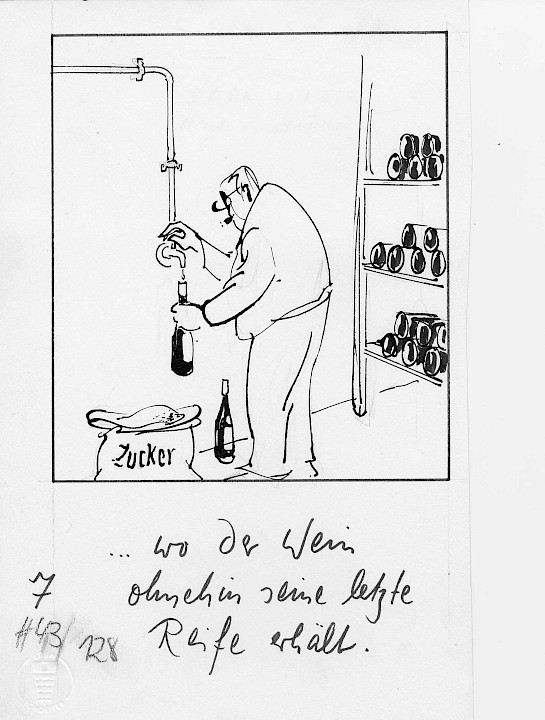 Zucker
... wo der Wein
7 ohnehin seine letzte
#43/128 Reife erhält.